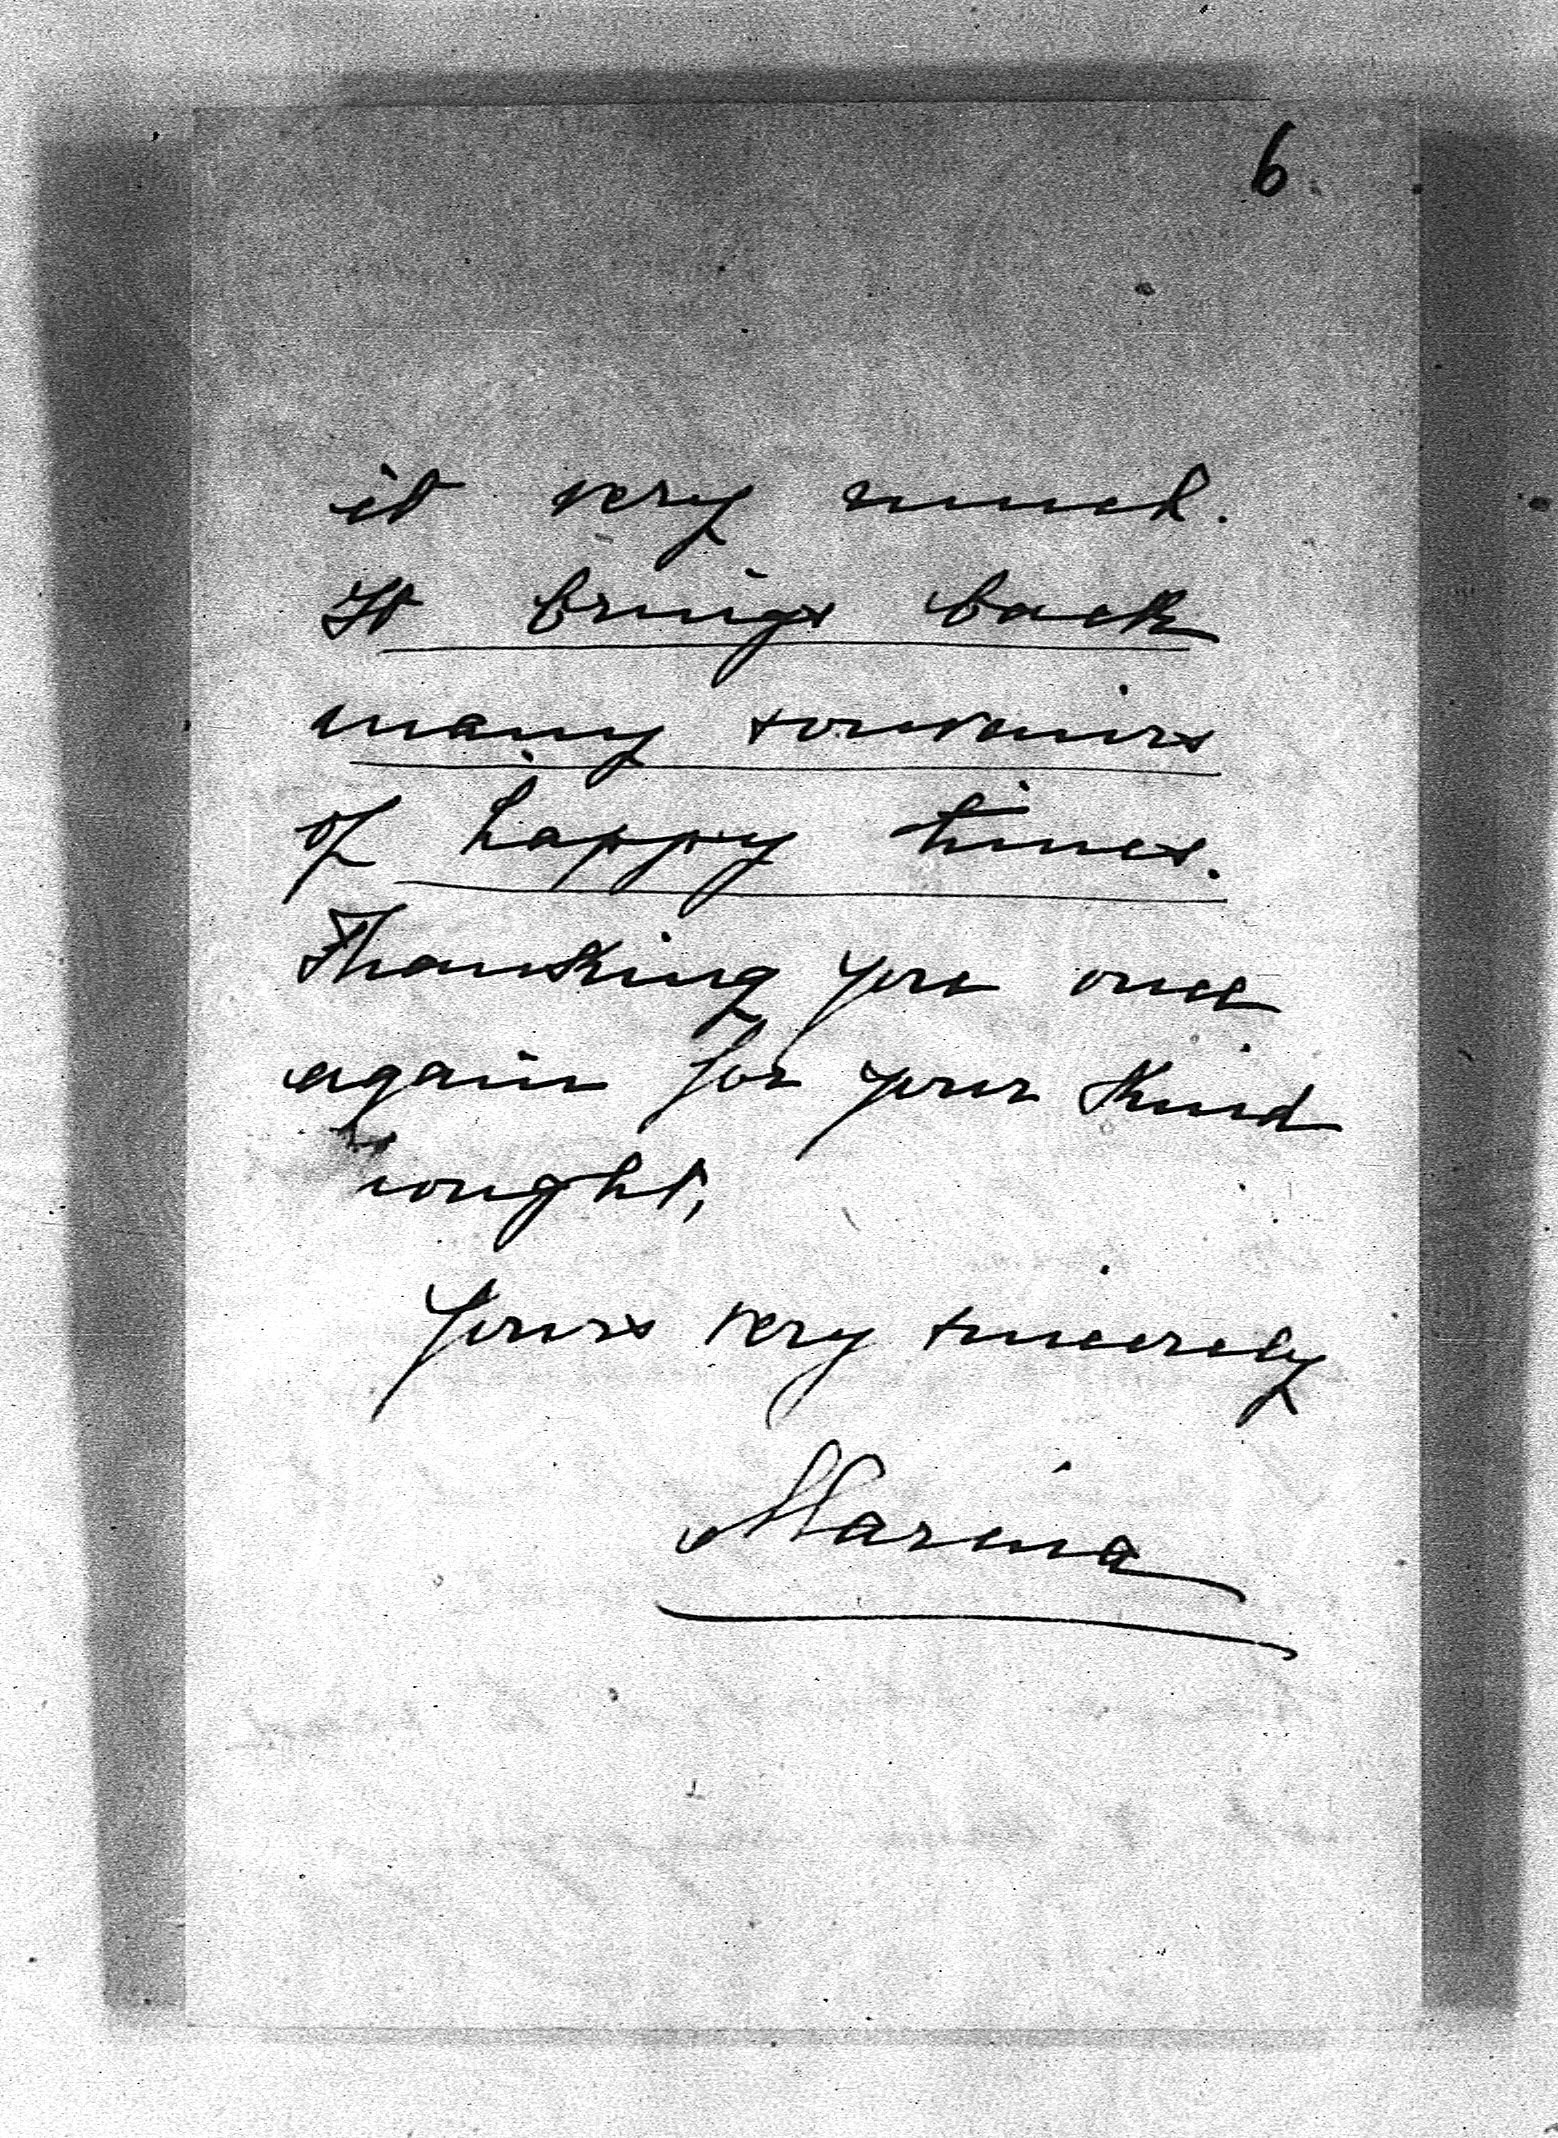 6.
it very much.
It brings back
many souvenirs
of happy times.
Thanking you once
again for your kind
thought,
Yours very sincerely
Marina